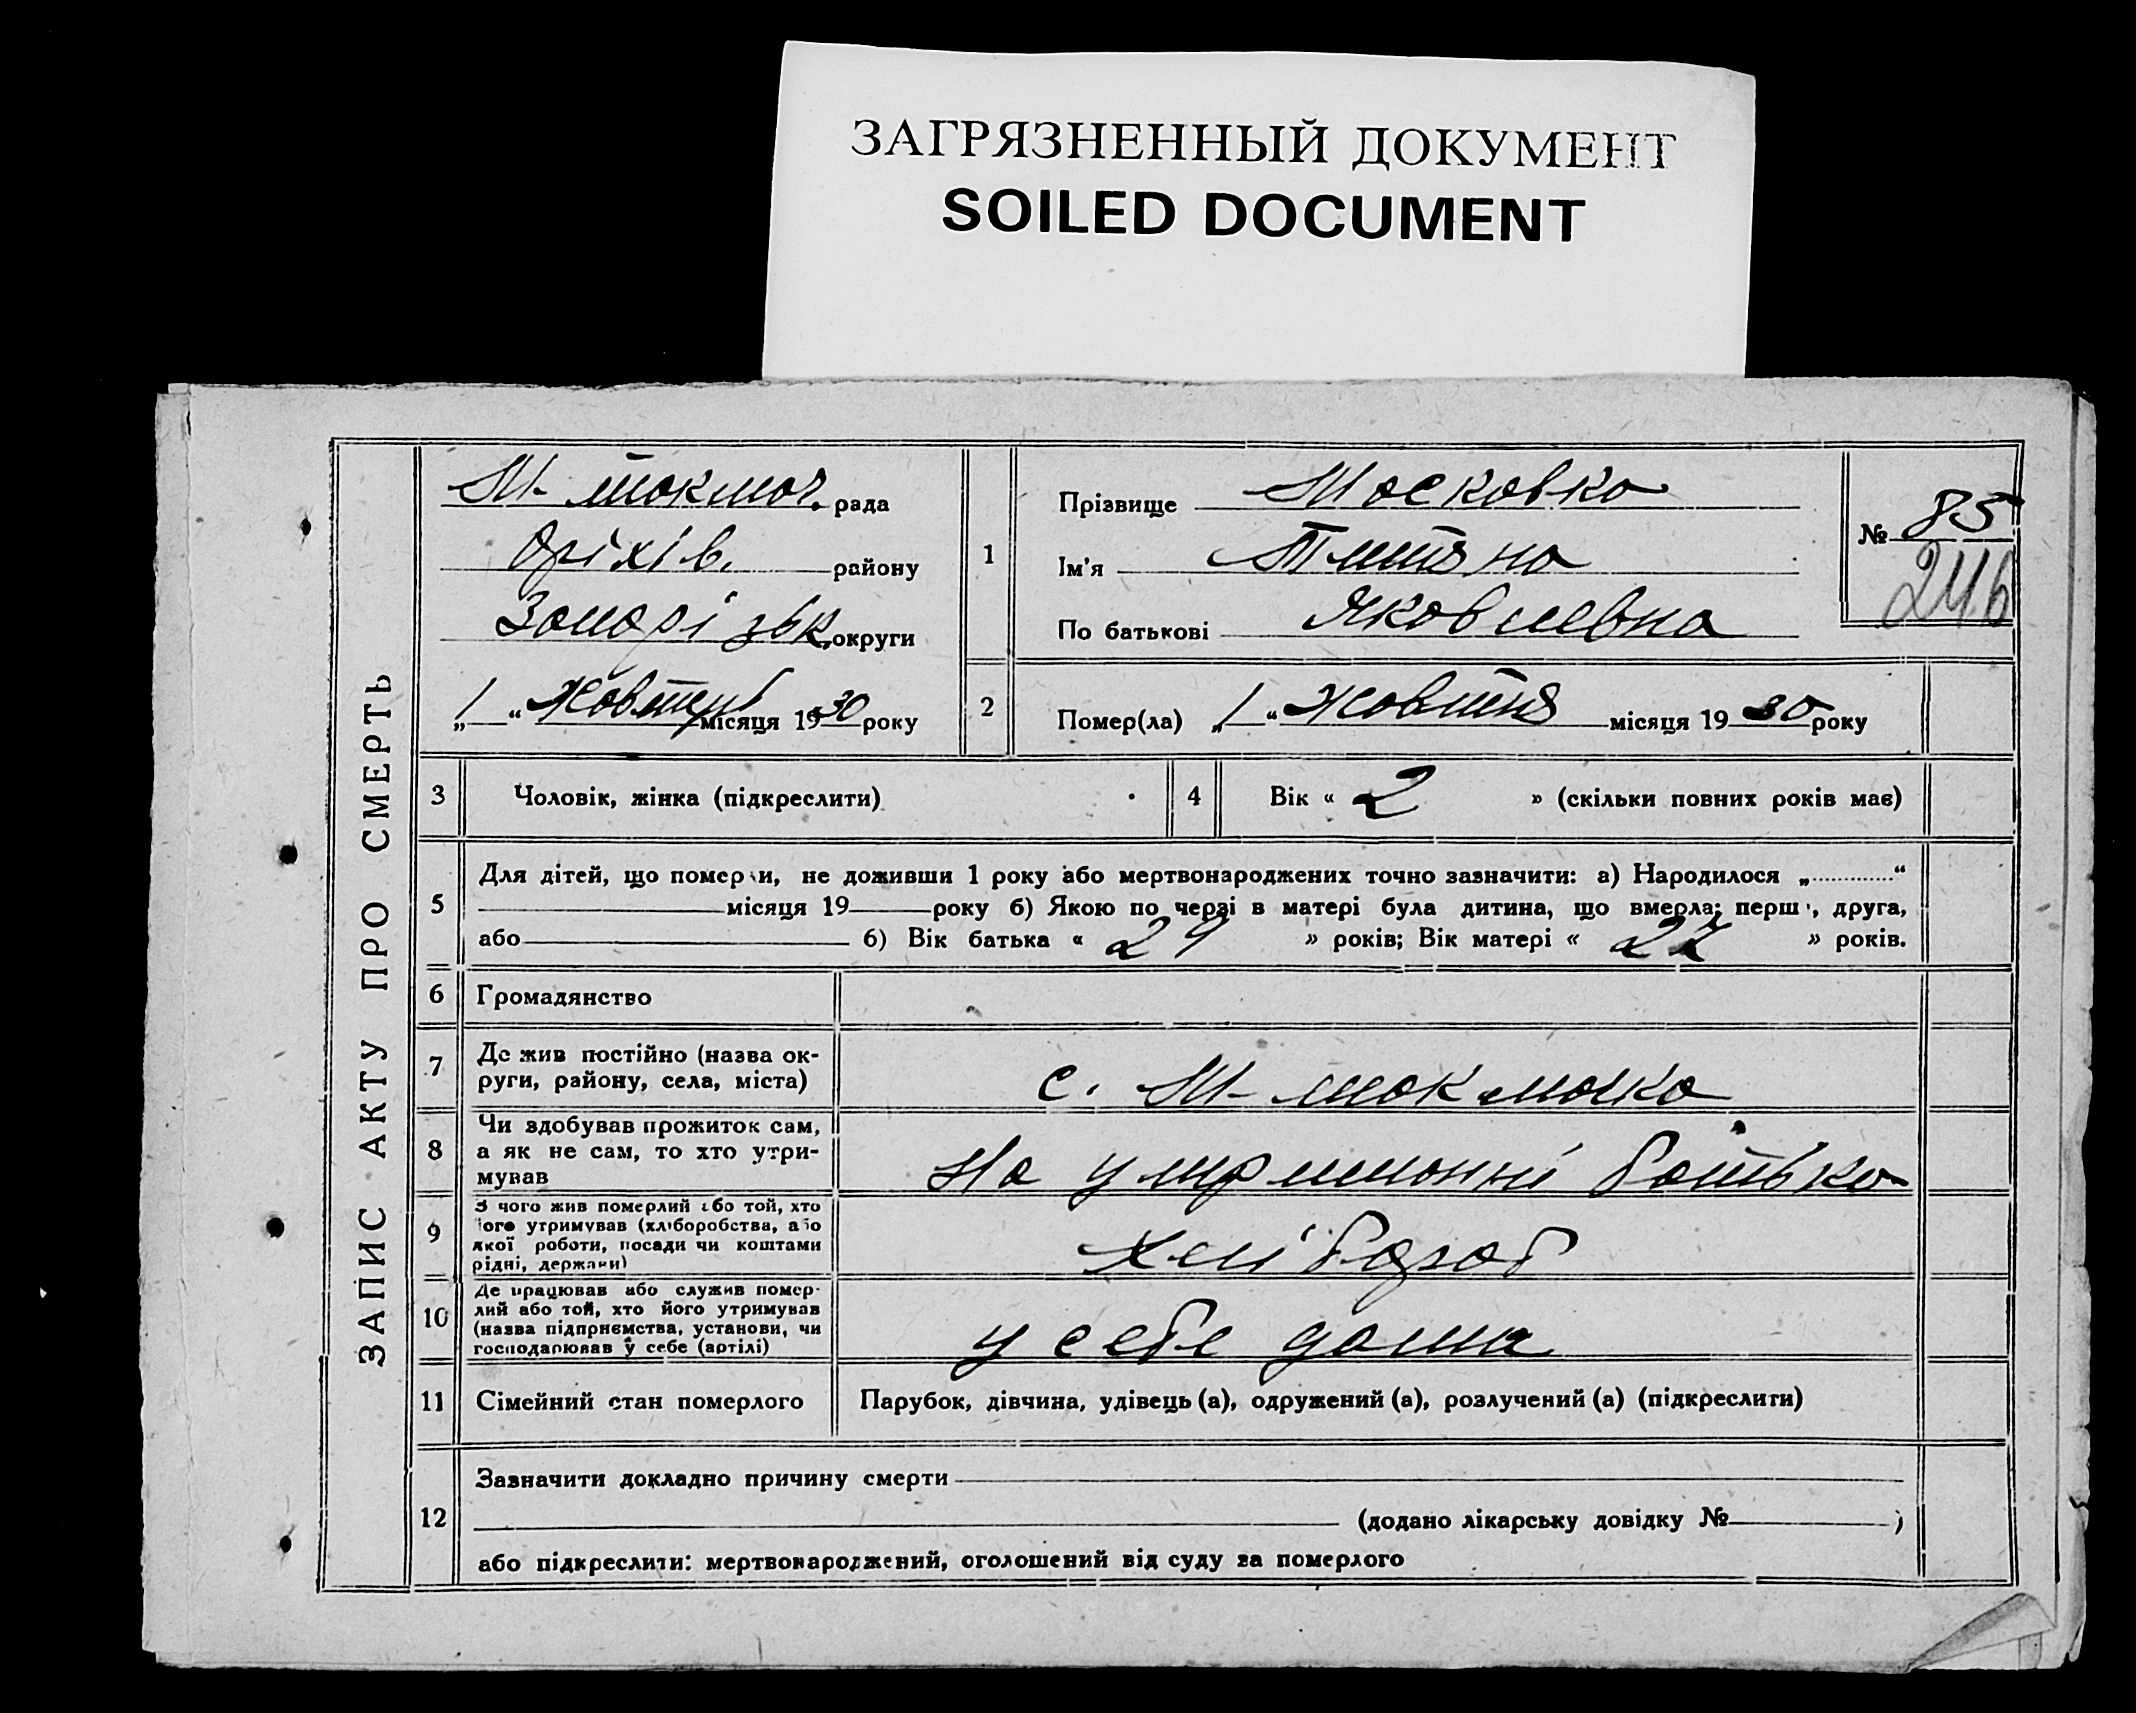 ЗАГРЯЗНЕННЫЙ ДОКУМЕНТ
SOILED DOCUMENT
ЗАПИС АКТУ ПРО СМЕРТЬ
М-Токмач. рада
Оріхів. району
Запорізьк. округи
„ 1 “ Жовтня місяця 1930 року
1
Прізвище Московка
Ім'я Тетяна
По батькові Яковлевна
№ 85
246
2 Помер(ла) „ 1 “ жовтня місяця 19 30 року
3 Чоловік, жінка (підкреслити)
4 Вік « 2 » (скільки повних років має)
5 Для дітей, що померли, не доживши 1 року або мертвонароджених точно зазначити: а) Народилося „ “
місяця 19 року б) Якою по черзі в матері була дитина, що вмерла; перша, друга,
або б) Вік батька « 29 » років; Вік матері « 27 » років.
6 Громадянство
7 Де жив постійно (назва ок-
руги, району, села, міста)
с. М-Токмачка
8 Чи здобував прожиток сам,
а як не сам, то хто утри-
мував
На утриманні батька
9 З чого жив померлий або той, хто
його утримував (хліборобства, або
якої роботи, посади чи коштами
рідні, держави)
Хлібороб
10 Де працював або служив помер-
лий або той, хто його утримував
(назва підприємства, установи, чи
господарював у себе (артілі)
у себе дома
11 Сімейний стан померлого Парубок, дівчина, удівець (а), одружений (а), розлучений (а) (підкреслити)
12 Зазначити докладно причину смерти
(додано лікарську довідку № )
або підкреслити: мертвонароджений, оголошений від суду за померлого